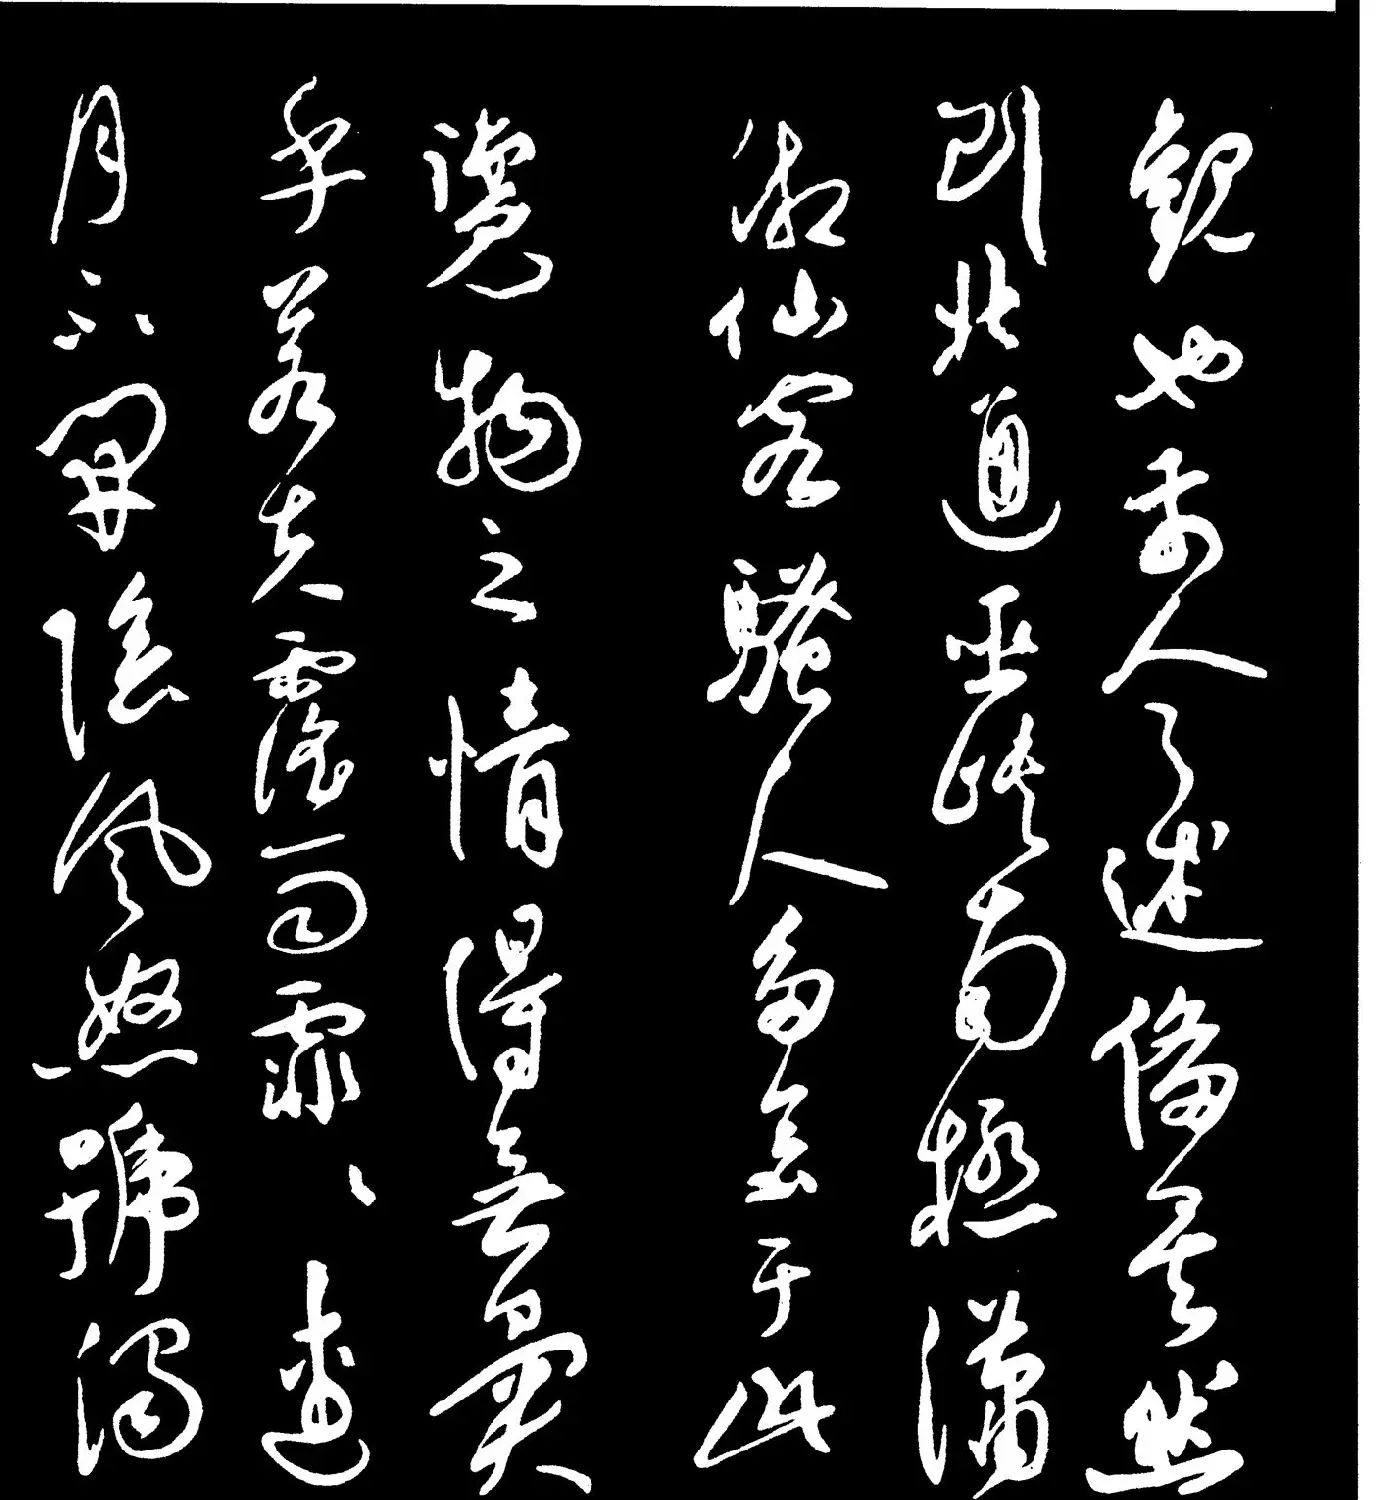 觀也前人之述備矣然
則北通巫峽南極瀟
湘仙客騷人多會于此
覽物之情得無異
乎若夫霪雨霏〻連
月不開陰風怒號濁